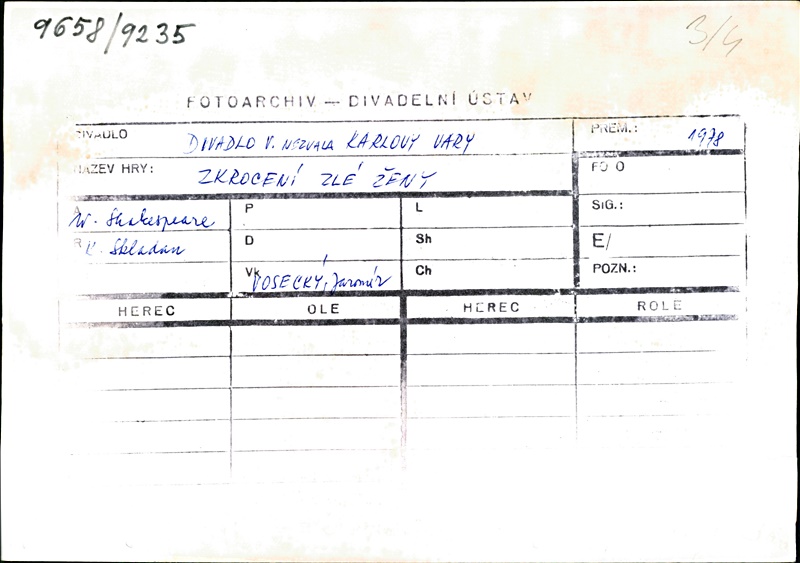 9658/9235
3/4
FOTOARCHIV — DIVADELNÍ ÚSTAV
DIVADLO DIVADLO V. NEZVALA KARLOVY VARY PREM.: 1978
NÁZEV HRY: ZKROCENÍ ZLÉ ŽENY FO O
A W. Shakespeare P L SIG.:
R K. Skladan D Sh E/
Vk VOSECKÝ, Jaromír Ch POZN.:
HEREC OLE HEREC ROLE